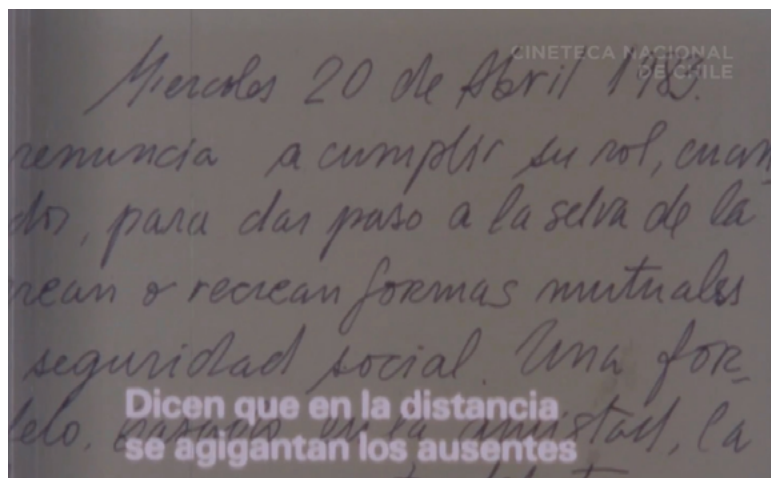 CINETECA NACIONAL
DE CHILE
Miercoles 20 de Abril 1983.
renuncia a cumplir su rol, cuan
dor, para dar paso a la selva de la
crean o recrean formas mutuales
seguridad social. Una for-
basado en la amistad, la
Dicen que en la distancia
se agigantan los ausentes